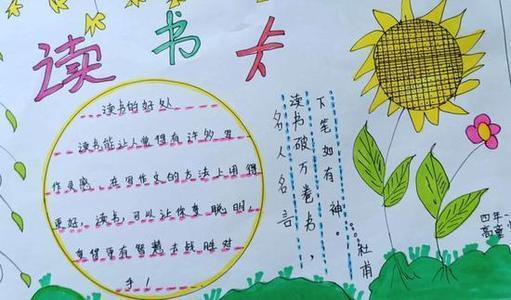 读书卡
读书的好处
读书能让人觉得有许多写
作灵感,在写作文的方法上用得
更好。读书可以让你变聪明,
变得更有智慧去战胜对
手!
名人名言
读书破万卷书,
下笔如有神。
杜甫
四年一